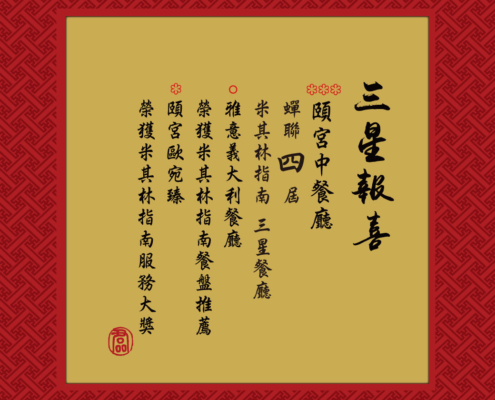 三星報喜
頤宮中餐廳
蟬聯四屆
米其林指南 三星餐廳
雅意義大利餐廳
榮獲米其林指南餐盤推薦
頤宮歐宛臻
榮獲米其林指南服務大獎